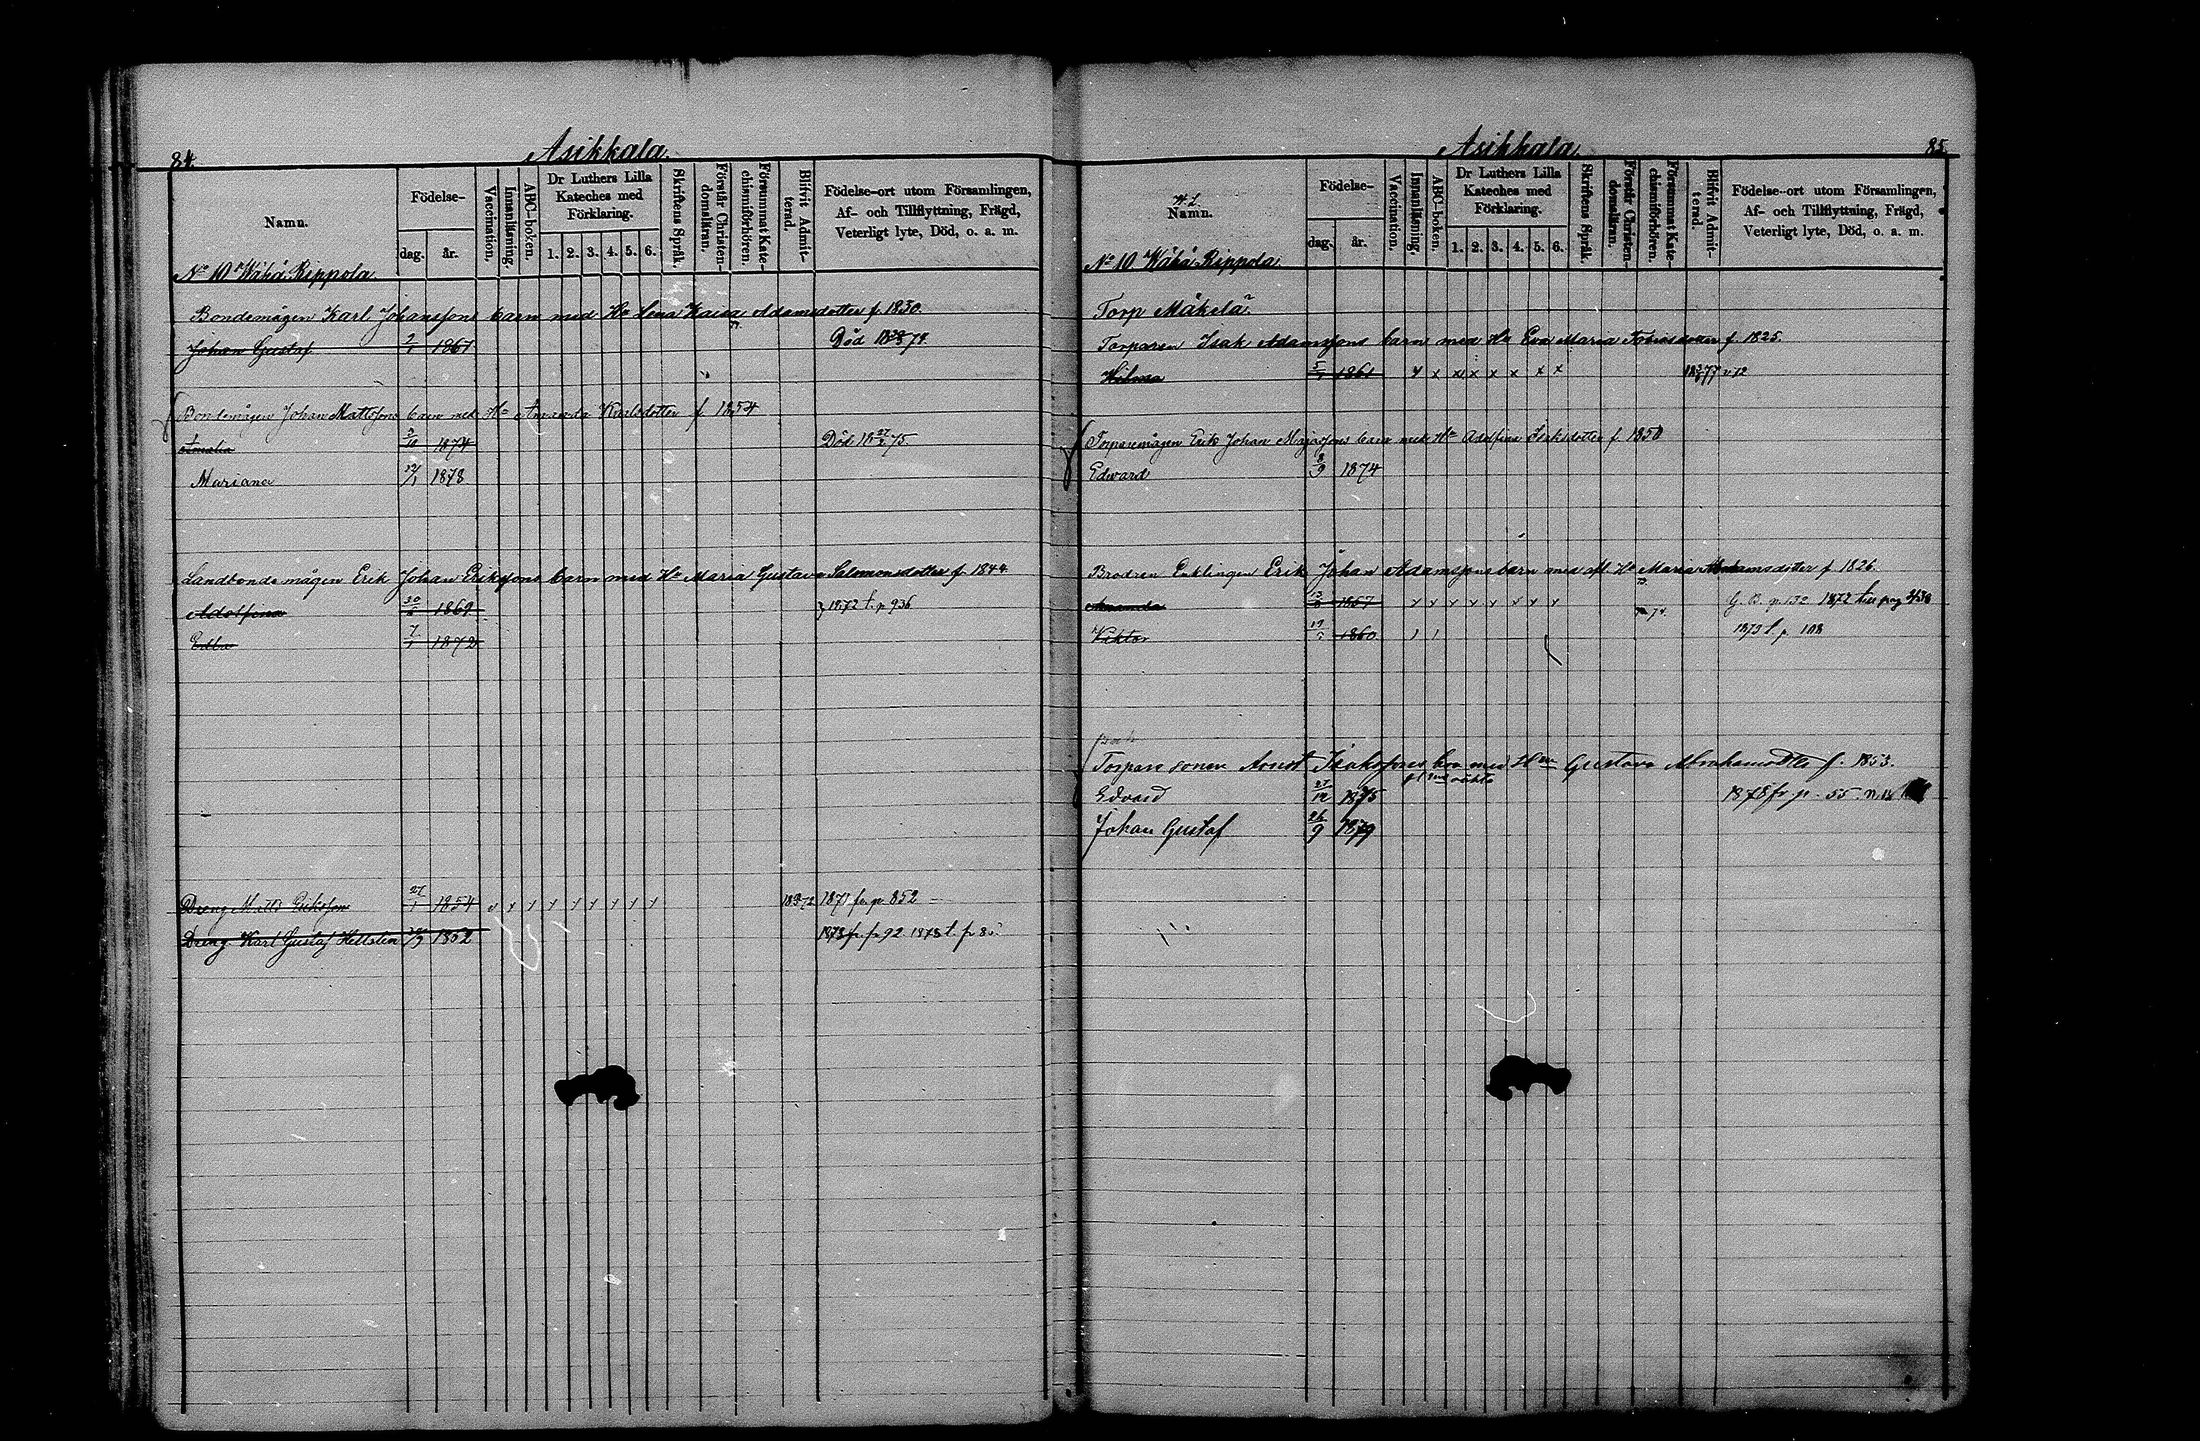 84.
Asikkala.
Namn.
Födelse-
dag.
år.
Vaccination.
Innanläsning.
ABC-boken.
Dr Luthers Lilla
Kateches med
Förklaring.
1. 2. 3. 4. 5. 6.
Skriftens Språk.
Förstår Christen-
domsläran.
Försummat Kate-
chismiförhören.
Blifvit Admit-
terad.
Födelse-ort utom Församlingen,
Af- och Tillflyttning, Frägd,
Veterligt lyte, Död, o. a. m.
No 10 Wähä Rippola.
Bondemågen Karl Johanssons barn med Hu Lena Kaisa Adamsdotter f. 1830.
Johan Gustaf 1861 Död
Bondemågen Johan Mattssons barn med Hu Amanda Karlsdotter f. 1854
Amalia 1874 Död
Mariana 1878
Landbonde mågen Erik Johan Erikssons barn med Hu Maria Gustava Salomonsdotter f. 1844
Adolfina 30 1869 1872 t. p 936
Edla 7/1 1872
Dreng Matts Eriksson 27/1 1854 v y y y y y y y y 1871 fr. p 852
Dreng Karl Gustaf Hellsten 1852 1873 fr. p 92. 1873 t. p
85
Asikkala.
Namn.
Födelse-
dag.
år.
Vaccination.
Innanläsning.
ABC-boken.
Dr Luthers Lilla
Kateches med
Förklaring.
1. 2. 3. 4. 5. 6.
Skriftens Språk.
Förstår Christen-
domsläran.
Försummat Kate-
chismiförhören.
Blifvit Admit-
terad.
Födelse-ort utom Församlingen,
Af- och Tillflyttning, Frägd,
Veterligt lyte, Död, o. a. m.
No 10 Wähä Rippola.
Torp Mäkelä
Torparen Isak Adamssons barn med Hu Eva Maria Tobiasdotter f. 1825.
Hilma 1861 y x x x x x x x
Torparemågen Erik Johan barn med Hu Adolfina Isaksdotter f. 1850
Edward 8/9 1874
Brodren Enklingen Erik Johan Adamssons barn med afl. Hu Maria f. 1826.
Amanda 1857 y y y y y y y y 74. G. B. p. 132 1872 till pag
Viktor 19 1860 1873 t. p. 108
Torpare sonen Isakssons barn med Hu Gustava Abrahamsdtter f. 1853.
Edvard 27/12 1875 1878 fr p. 55.
Johan Gustaf 26/9 1879